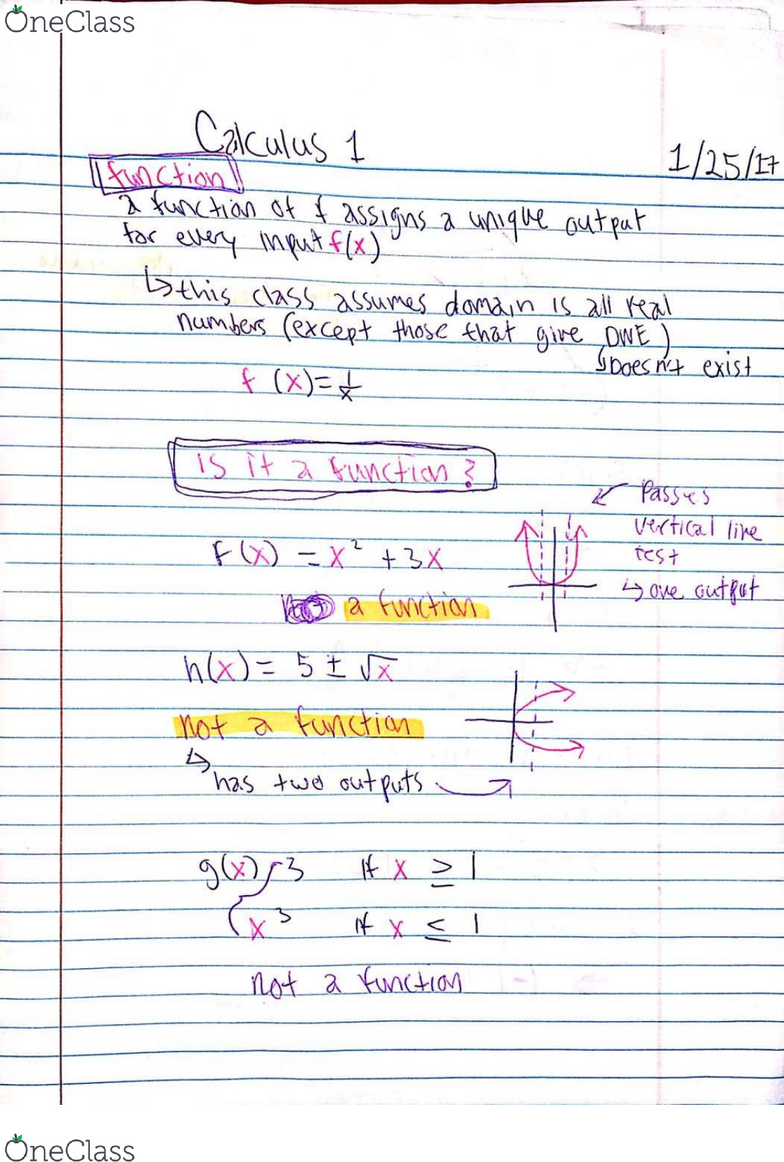 OneClass
Calculus 1
1/25/17
function
a function of f assigns a unique output
for every input f(x)
↳ this class assumes domain is all real
numbers (except those that give DWE)
↳ Doesn't exist
f (x) = 1/x
is it a function?
Passes
vertical line
test
↳ one output
f(x) = x² + 3x
a function
h(x) = 5 ± √x
not a function
↳ has two outputs
g(x) { 3 if x ≥ 1
x³ if x ≤ 1
not a function
OneClass